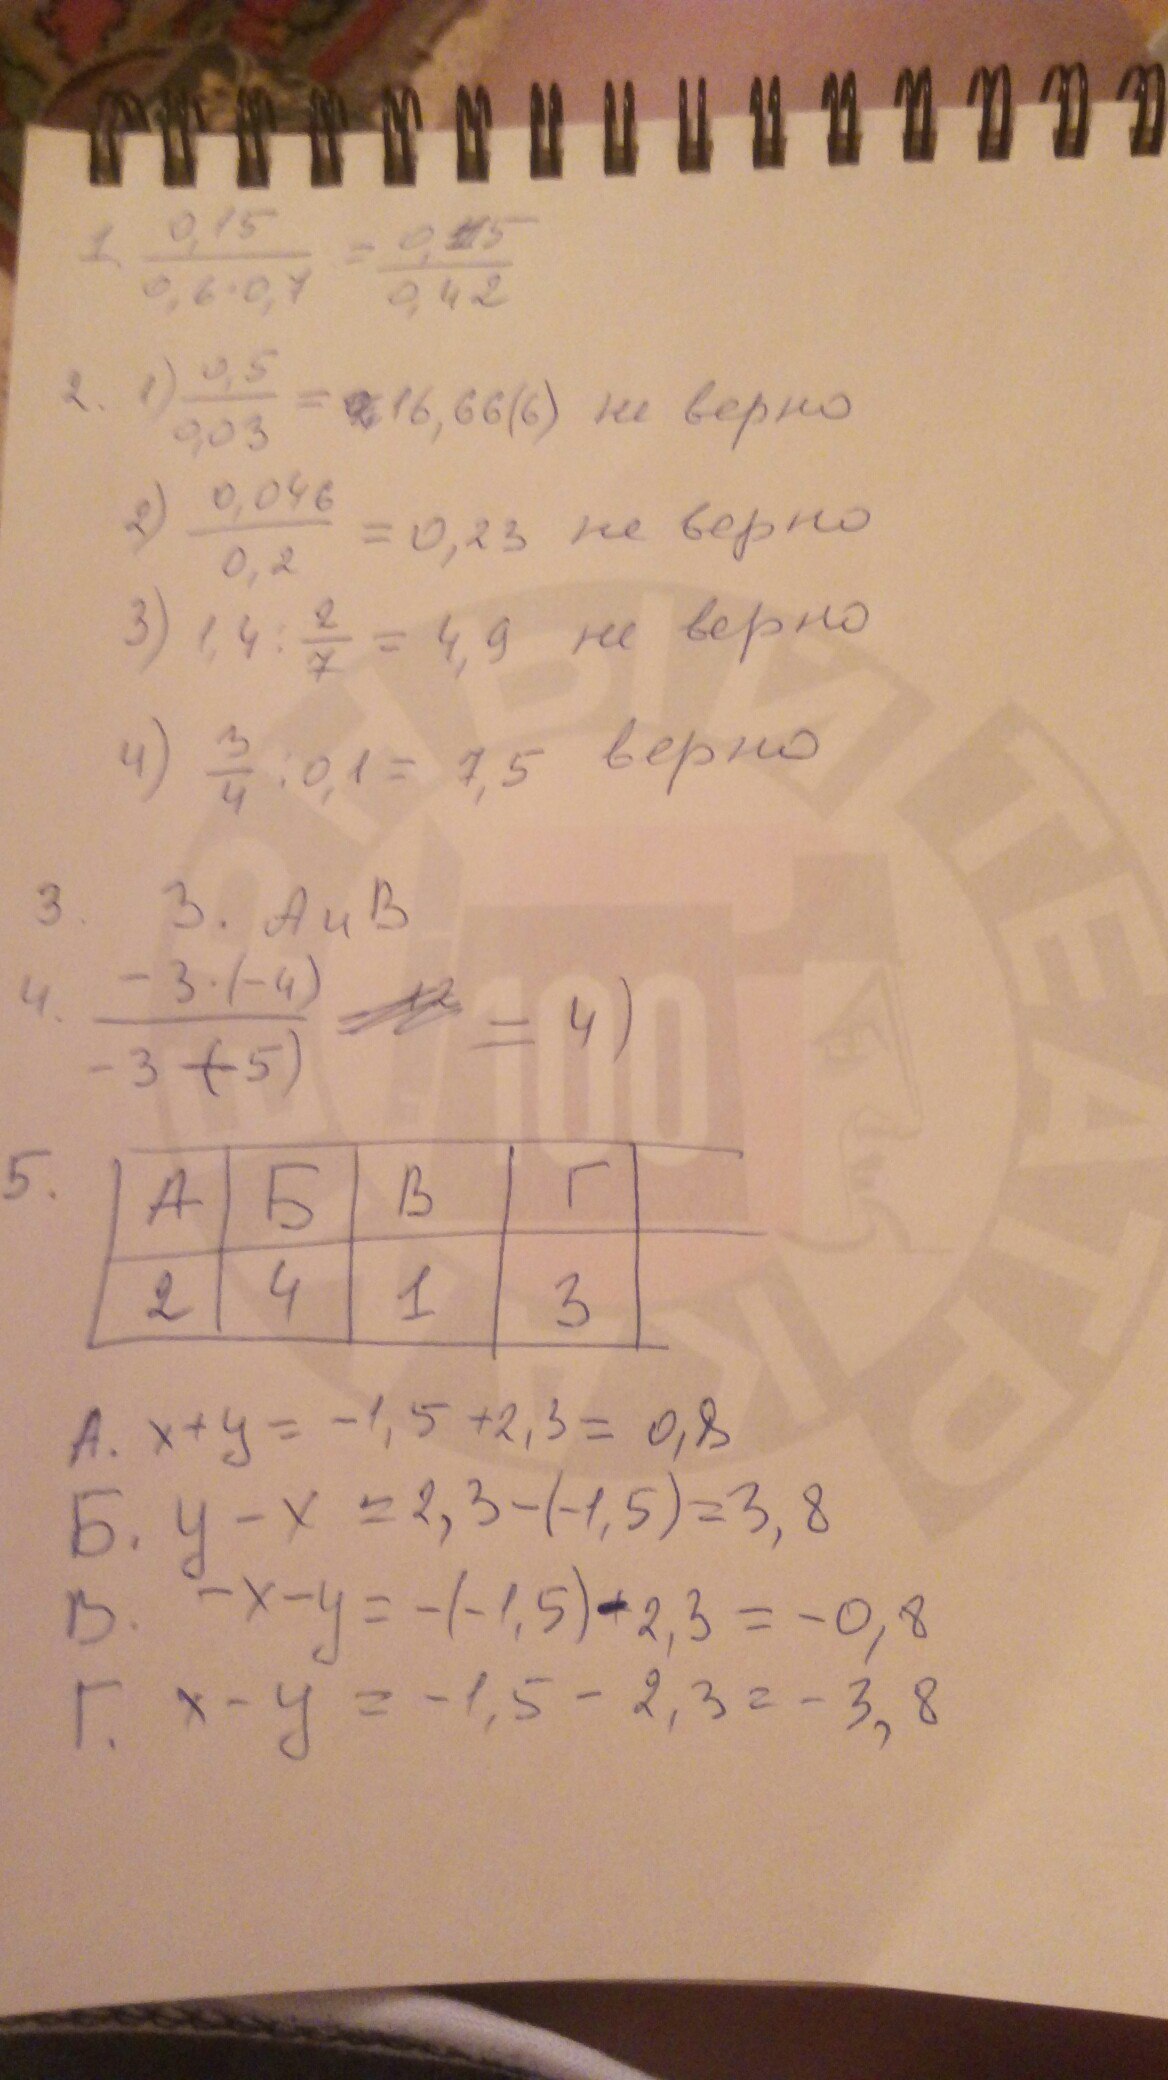 1. 0,15 / 0,6·0,7 = 0,15 / 0,42
2. 1) 0,5 / 0,03 = 16,66(6) не верно
2) 0,046 / 0,2 = 0,23 не верно
3) 1,4 : 2/7 = 4,9 не верно
4) 3/4 : 0,1 = 7,5 верно
3. 3. А и В
4. -3·(-4) / -3+(-5) = 4)
5. А Б В Г
2 4 1 3
А. x+y = -1,5+2,3 = 0,8
Б. y-x = 2,3-(-1,5) = 3,8
В. -x-y = -(-1,5)-2,3 = -0,8
Г. x-y = -1,5-2,3 = -3,8
100